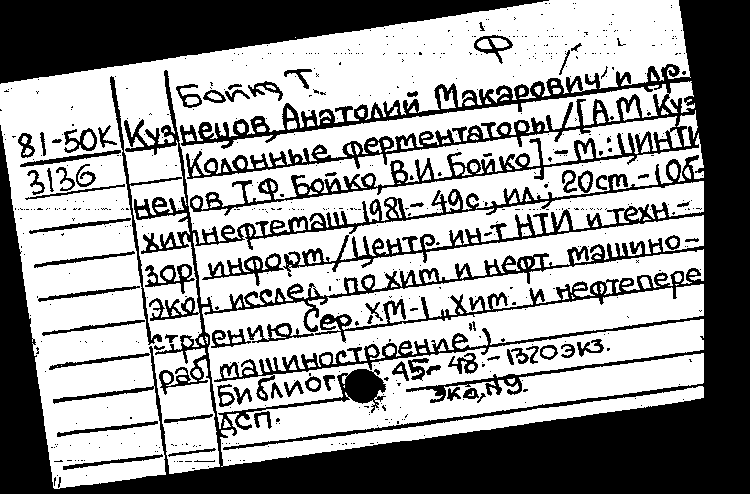 Ф
Бойко Т
81-50К Кузнецов, Анатолий Макарович и др.
3136 Колонные ферментаторы / [А.М. Куз
нецов, Т.Ф. Бойко, В.И. Бойко]. - М.: ЦИНТИ
химнефтемаш, 1981. - 49с., ил.; 20см. - (Об-
зор. информ. / Центр. ин-т НТИ и техн.-
экон. исслед. по хим. и нефт. машино-
строению. Сер. ХМ-1 „Хим. и нефтепере
раб. машиностроение").
Библиогр 45-48. - 1320 экз.
Экз, №9.
ДСП.